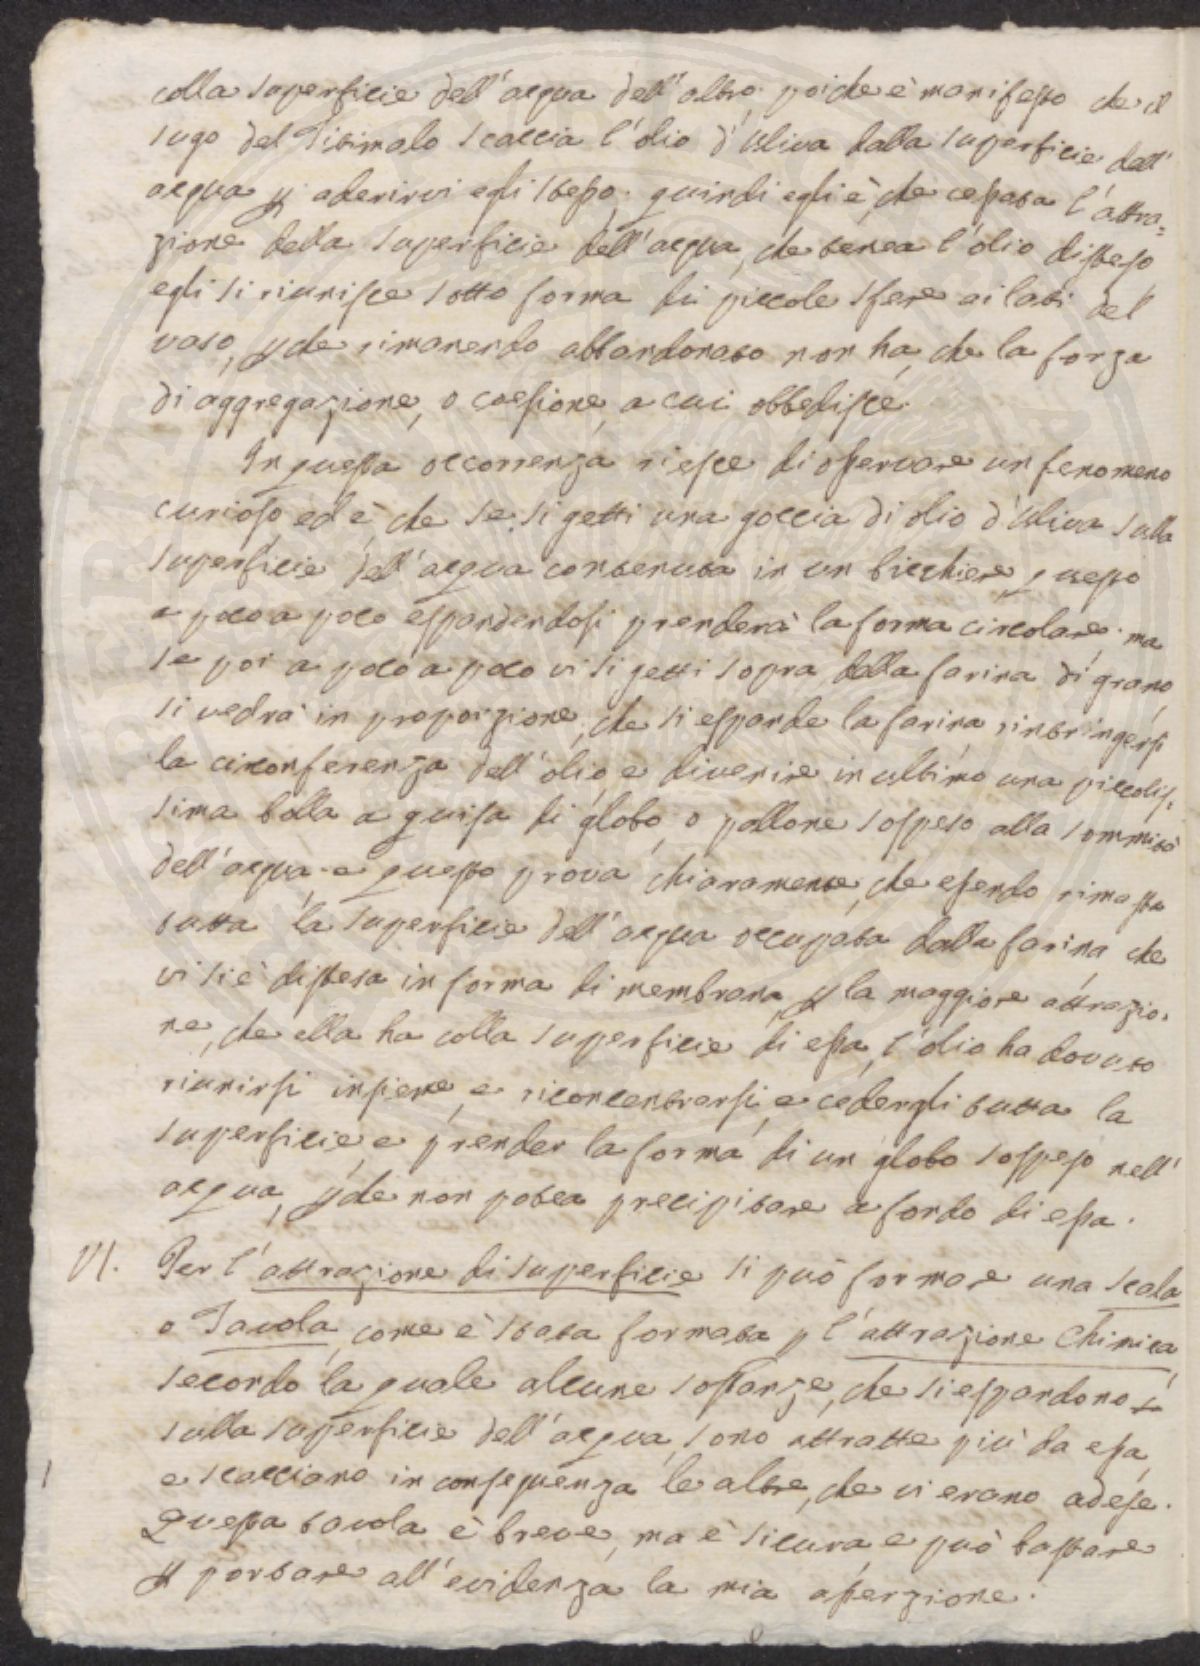 colla superficie dell'acqua dell'altro: poiche è manifesto che il
sugo del Titimalo scaccia l'olio d'Uliva dalla superficie dell'
acqua p aderirvi egli stesso: quindi egli è, che cessata l'attra=
zione della superficie dell'acqua, che tenea l'olio disteso
egli si riunisce sotto forma di piccole sfere ai lati del
vaso, pche rimanendo abbandonato non ha, che la forza
di aggregazione, o coesione, a cui obbedisce.
In questa occorrenza riesce di osservare un fenomeno
curioso, ed è, che se si getti una goccia di olio d'Uliva sulla
superficie dell'acqua contenuta in un bicchiere, questo
a poco a poco espandendosi prenderà la forma circolare: ma
se poi a poco a poco vi si getti sopra della farina di grano,
si vedrà in proporzione, che si espande la farina rintringersi
la circonferenza dell'olio, e divenire in ultimo una piccolis=
sima bolla a guisa di globo, o pallone sospeso alla sommità
dell'acqua: e questo prova chiaramente, che essendo rimasta
tutta la superficie dell'acqua occupata dalla farina che
vi si è distesa in forma di membrana, p la maggiore attrazio=
ne, che ella ha colla superficie di essa, l'olio ha dovuto
riunirsi insieme, e riconcentrarsi, e cedergli tutta la
superficie, e prender la forma di un globo sospeso nell'
acqua, pche non potea precipitare a fondo di essa.
VI. Per l'attrazione di superficie si può formare una scala
o Tavola, come è stata formata p l'attrazione Chimica,
secondo la quale alcune sostanze, che si espandono
sulla superficie dell'acqua, sono attratte più da essa,
e scacciano in conseguenza le altre, che vi erano adese.
Questa tavola è breve, ma è sicura, e può bastare
p portare all'evidenza la mia asserzione.